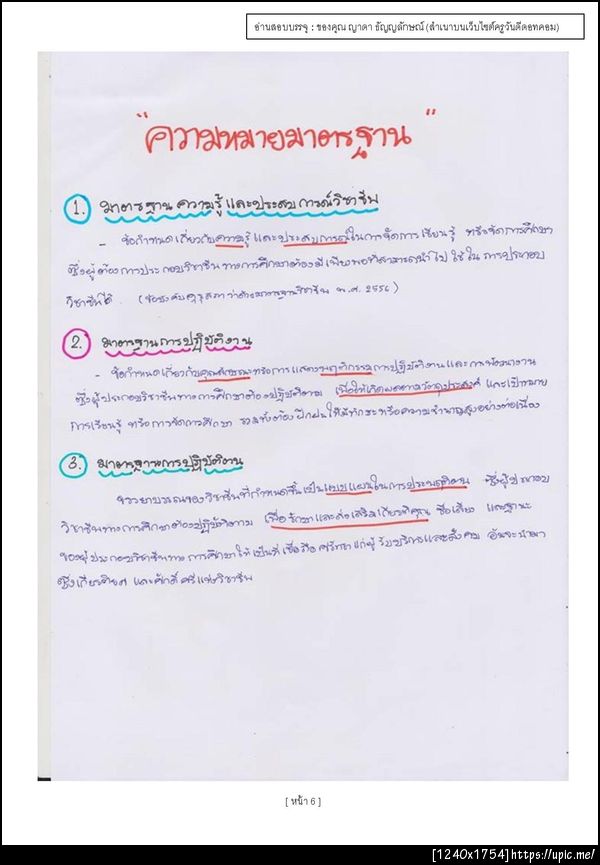 อ่านสอบบรรจุ : ของคุณ ญาดา ธัญญลักษณ์ (สำเนาบนเว็บไซต์ครูวันดีดอทคอม)
"ความหมายมาตรฐาน"
1. มาตรฐานความรู้และประสบการณ์วิชาชีพ
- ข้อกำหนดเกี่ยวกับความรู้และประสบการณ์ในการจัดการเรียนรู้ หรือจัดการศึกษา
ซึ่งผู้ต้องการประกอบวิชาชีพทางการศึกษาต้องมีเพียงพอที่สามารถนำไปใช้ในการประกอบ
วิชาชีพได้ (ข้อบังคับคุรุสภาว่าด้วยมาตรฐานวิชาชีพ พ.ศ. 2556)
2. มาตรฐานการปฏิบัติงาน
- ข้อกำหนดเกี่ยวกับคุณลักษณะหรือการแสดงพฤติกรรมการปฏิบัติงานและการพัฒนางาน
ซึ่งผู้ประกอบวิชาชีพทางการศึกษาต้องปฏิบัติตาม เพื่อให้เกิดผลตามวัตถุประสงค์ และเป้าหมาย
การเรียนรู้ หรือการจัดการศึกษา รวมทั้งต้องฝึกฝนให้มีทักษะหรือความชำนาญสูงอย่างต่อเนื่อง
3. มาตรฐานการปฏิบัติตน
จรรยาบรรณของวิชาชีพที่กำหนดขึ้นเป็นแบบแผนในการประพฤติตน ซึ่งผู้ประกอบ
วิชาชีพทางการศึกษาต้องปฏิบัติตาม เพื่อรักษาและส่งเสริมเกียรติคุณ ชื่อเสียง และฐานะ
ของผู้ประกอบวิชาชีพทางการศึกษาให้เป็นที่เชื่อถือศรัทธาแก่ผู้รับบริการและสังคม อันจะนำมา
ซึ่งเกียรติยศ และศักดิ์ศรีแห่งวิชาชีพ
[ หน้า 6 ]
[1240x1754]https://upic.me/